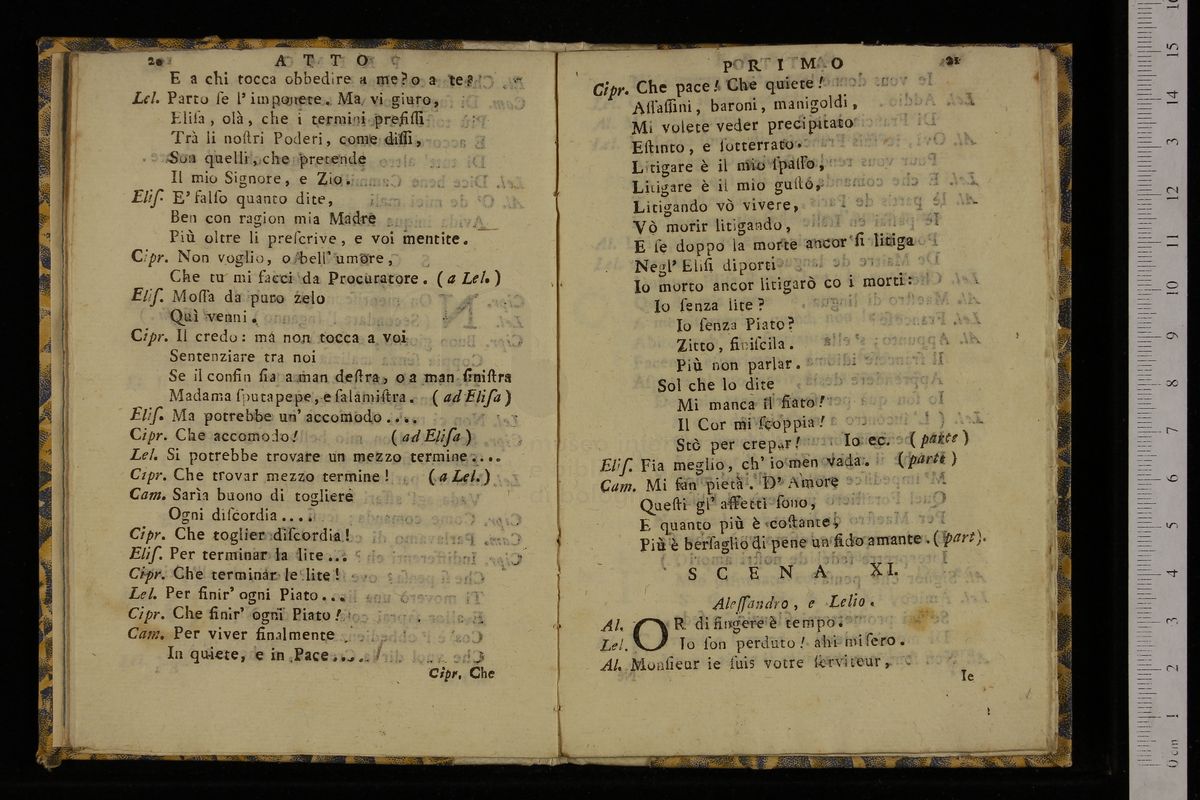 20 ATTO
E a chi tocca obbedire a me? o a te?
Lel. Parto ſe l'imponete. Ma vi giuro,
Eliſa, olà, che i termini prefiſſi
Trà li noſtri Poderi, come diſſi,
Son quelli, che pretende
Il mio Signore, e Zio.
Eliſ. E' falſo quanto dite,
Ben con ragion mia Madre
Più oltre li preſcrive, e voi mentite.
Cipr. Non voglio, o bell'umore,
Che tu mi facci da Procuratore. (a Lel.)
Eliſ. Moſſa da puro zelo
Quì venni.
Cipr. Il credo: ma non tocca a voi
Sentenziare tra noi
Se il confin ſia a man deſtra, o a man ſiniſtra
Madama ſputapepe, e ſalamiſtra. (ad Eliſa)
Eliſ. Ma potrebbe un'accomodo....
Cipr. Che accomodo! (ad Eliſa)
Lel. Si potrebbe trovare un mezzo termine....
Cipr. Che trovar mezzo termine! (a Lel.)
Cam. Sarìa buono di togliere
Ogni diſcordia....
Cipr. Che toglier diſcordia!
Eliſ. Per terminar la lite...
Cipr. Che terminar le lite!
Lel. Per finir' ogni Piato...
Cipr. Che finir' ogni Piato!
Cam. Per viver finalmente
In quiete, e in Pace....
Cipr. Che
PRIMO 21
Cipr. Che pace! Che quiete!
Aſſaſſini, baroni, manigoldi,
Mi volete veder precipitato
Eſtinto, e ſotterrato.
Litigare è il mio ſpaſſo,
Litigare è il mio guſto,
Litigando vò vivere,
Vò morir litigando,
E ſe doppo la morte ancor ſi litiga
Negl' Eliſi diporti
Io morto ancor litigarò co i morti:
Io ſenza lite?
Io ſenza Piato?
Zitto, finiſcila.
Più non parlar.
Sol che lo dite
Mi manca il fiato!
Il Cor mi ſcoppia!
Stò per crepar! Io ec. (parte)
Eliſ. Fia meglio, ch'io men vada. (parte)
Cam. Mi fan pietà. D'Amore
Queſti gl' affetti ſono,
E quanto più è coſtante,
Più è berſaglio di pene un fido amante. (part).
SCENA XI.
Aleſſandro, e Lelio.
Al. OR di fingere è tempo.
Lel. Io ſon perduto! ahi miſero.
Al. Monſieur ie ſuis votre ſerviteur,
Ie